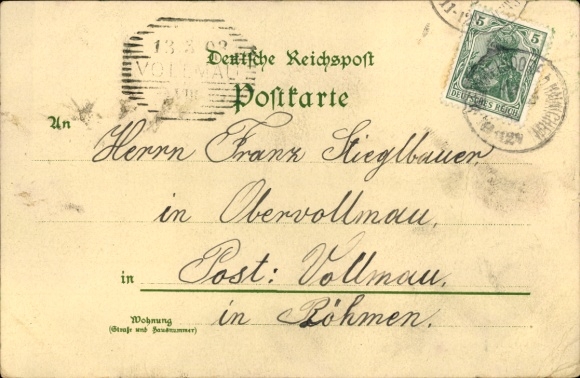 13 3 03
VOLLMAU
Deutsche Reichspost
Postkarte
5 5
DEUTSCHES REICH
An Herrn Franz Stieglbauer
in Obervollmau,
in Post: Vollmau.
in Böhmen.
Wohnung
(Straße und Hausnummer)